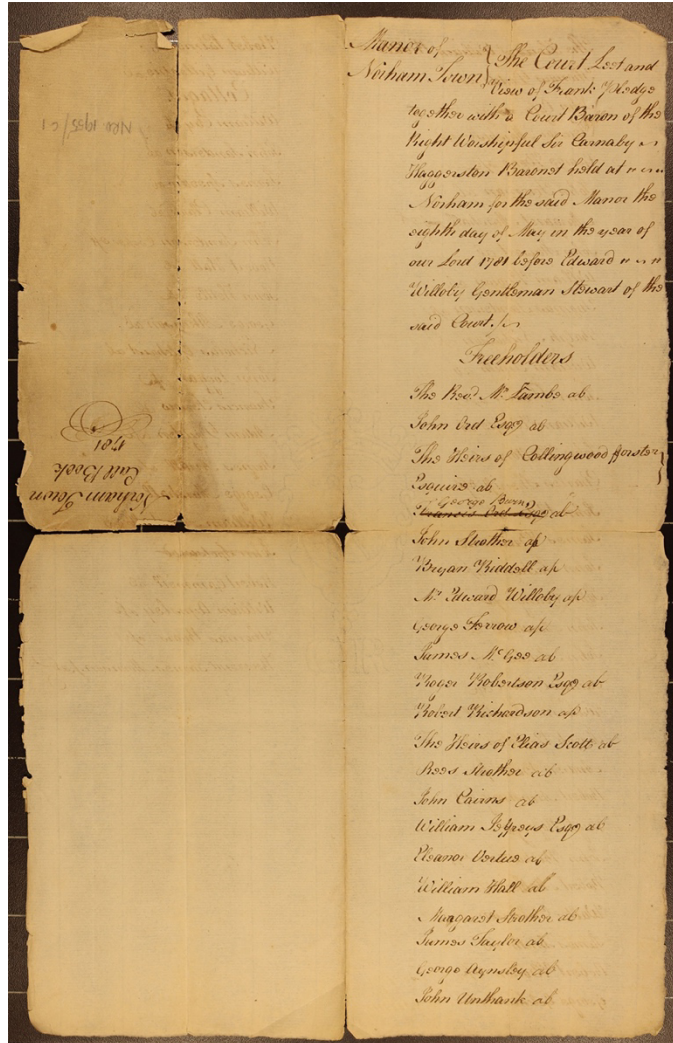 Manor of
Norham Town
The Court Leet and
View of Frank Pledge
together with a Court Baron of the
Right Worshipful Sir Carnaby
Haggerston Baronet held at
Norham for the said Manor the
eighth day of May in the year of
our Lord 1781 before Edward
Willoby Gentleman Stewart of the
said Court
Freeholders
The Revd. Mr. Lambe ab
John Ord Esqr ab
The Heirs of Collingwood fforster
Esquire ab
George Burn
Francis Ord Esqr ab
John Strother ap
Bryan Riddell ap
Mr. Edward Willoby ap
George Forrow ap
James McGee ab
Roger Robertson Esqr ab
Robert Richardson ap
The Heirs of Elias Scott ab
Rees Strother ab
John Cairns ab
William Jeffreys Esqr ab
Eleanor Vertue ab
William Hall ab
Margaret Strother ab
James Taylor ab
George Aynsley ab
John Unthank ab
Norham Town
Call Book
1781
NRO 1955/C1